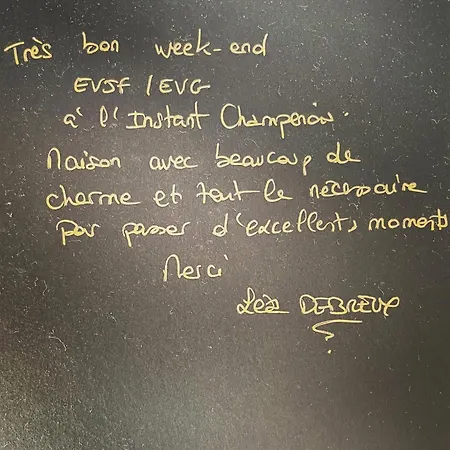 Très bon week-end
EVJF / EVG
à l'Instant Champenois.
Maison avec beaucoup de
charme et tout le nécessaire
pour passer d'excellents moments
Merci
Léa